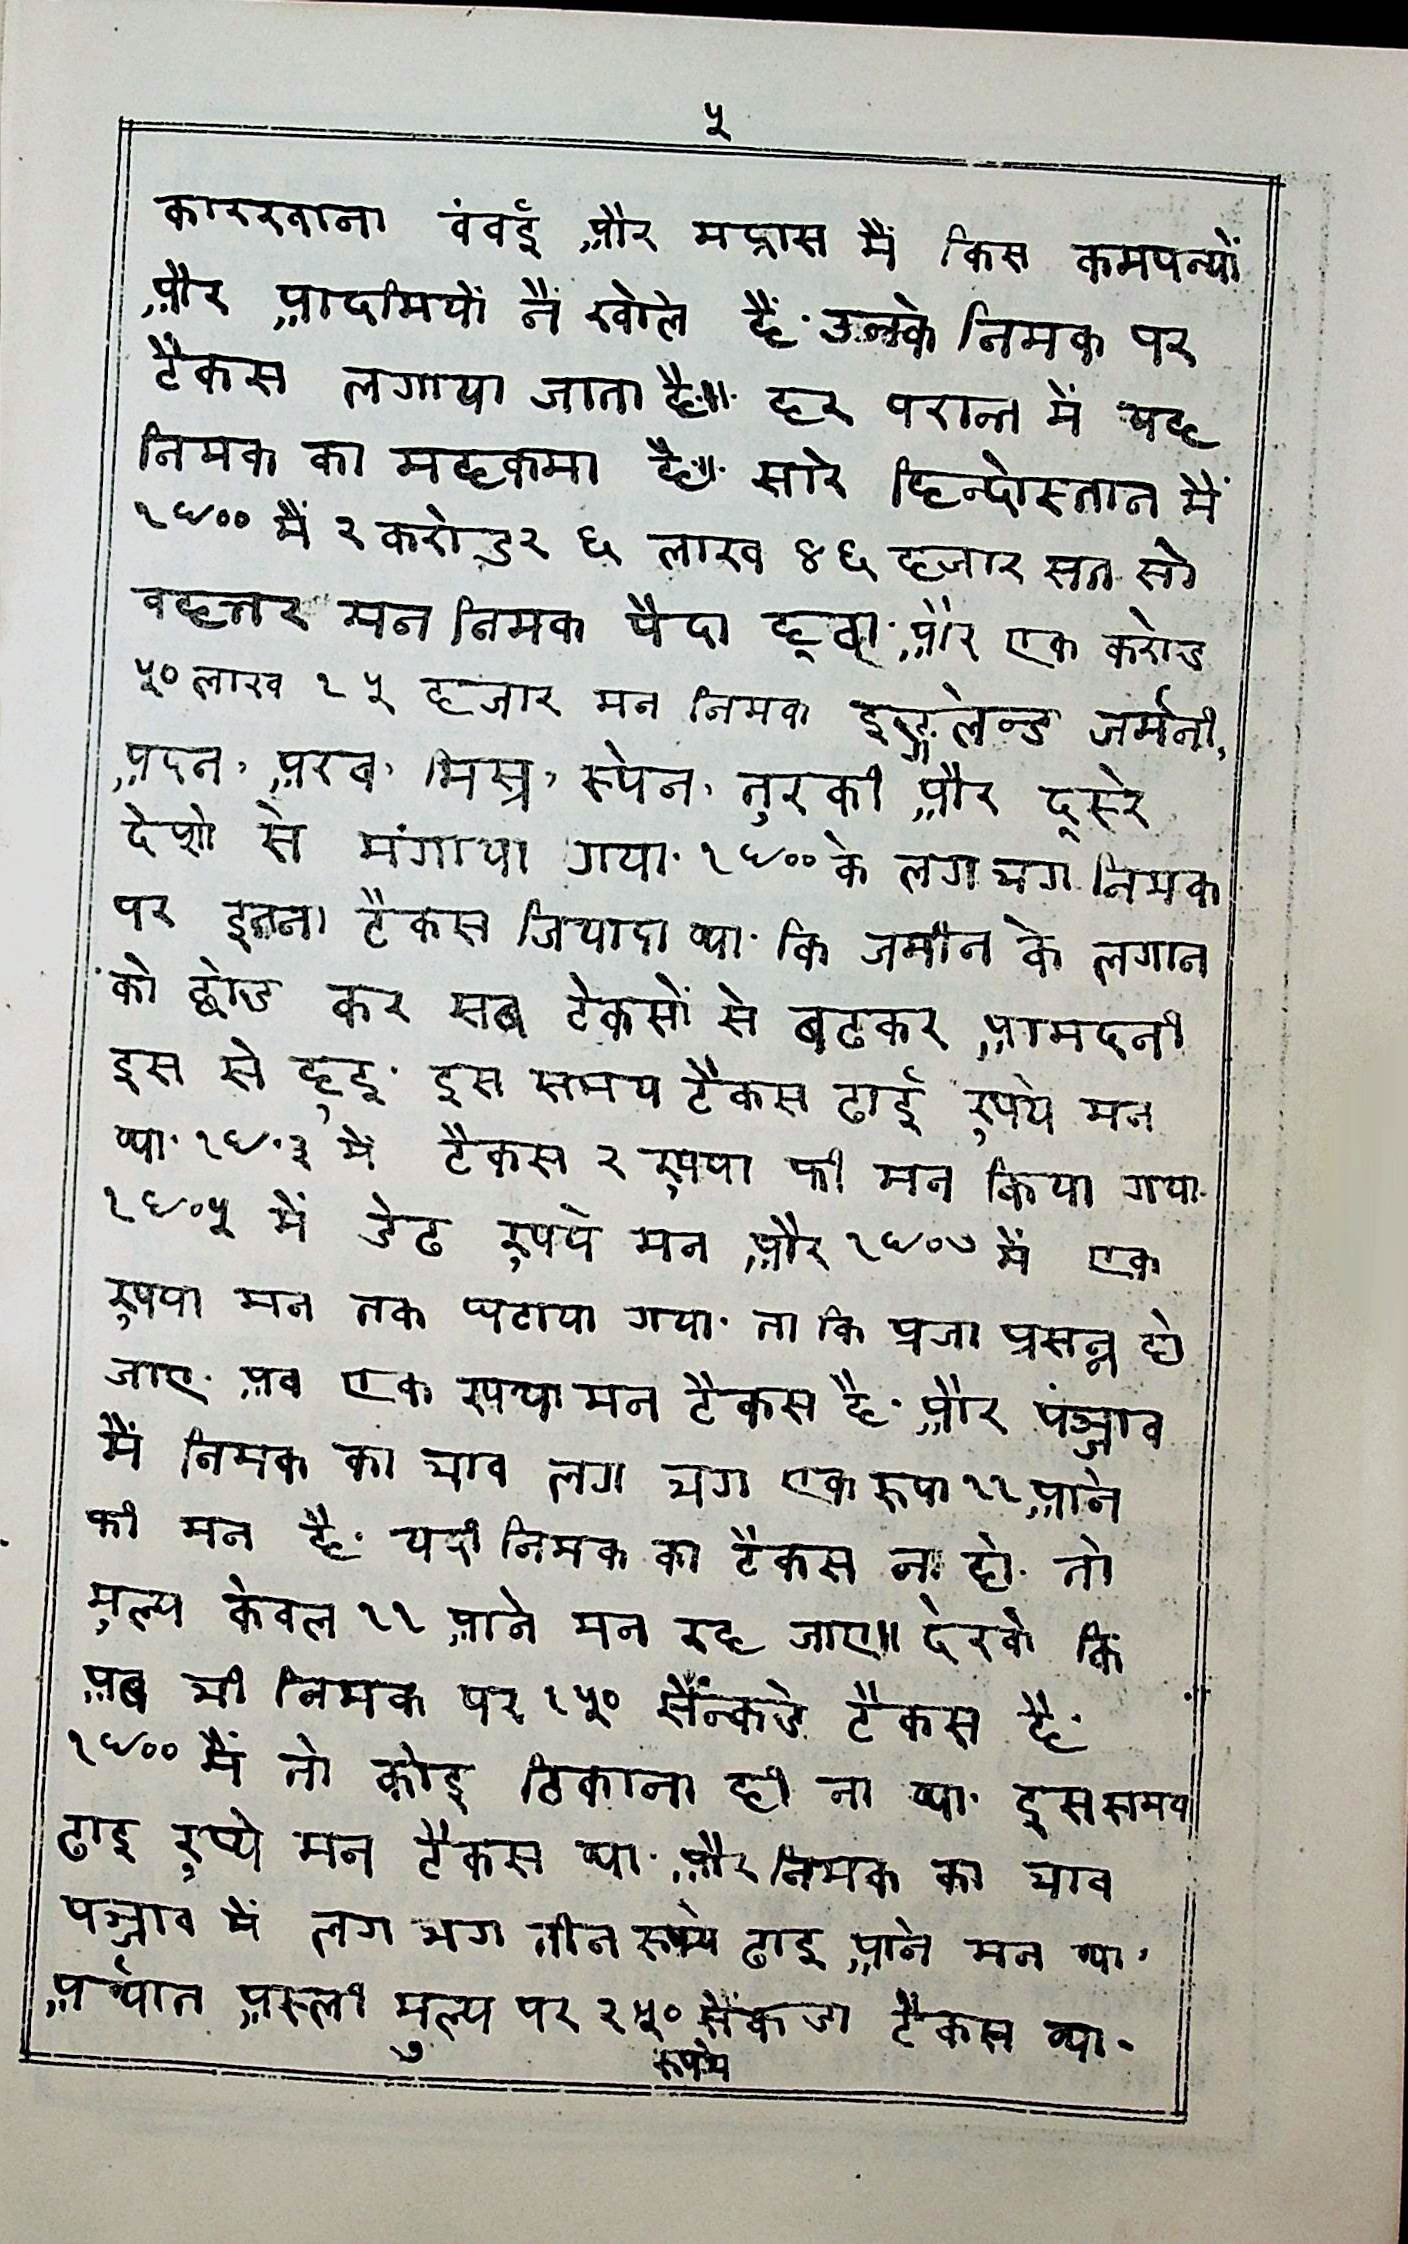 ५
कारखाना वंवई और मद्रास मैं किस कमपन्यों
और आदमियों नैं खोले हैं. उनके निमक पर
टैकस लगाया जाता है॥ हर परान्त में यह
निमक का महकमा है॥ सारे हिन्दोस्तान मैं
१९०० मैं २ करोडर ६ लाख ४६ हजार सात सो
वहत्तर मन निमक पैदा हूवा. और एक करोड
५० लाख १५ हजार मन निमक इङ्गलेन्ड जर्मनी,
अदन, अरब, मिस्र, स्पेन, तुरकी और दूसरे
देशो से मंगाया गया. १९०० के लग भग निमक
पर इतना टैकस जियादा था. कि जमीन के लगान
को छोड कर सब टेकसों से बढकर आमदनी
इस से हुइ. इस समय टैकस ढाई रुपये मन
था. १९०३ में टैकस २ रुपया फी मन किया गया.
१९०५ में डेढ रुपये मन और १९०७ में एक
रुपया मन तक घटाया गया. ता कि प्रजा प्रसन्न हो
जाए. अब एक रुपया मन टैकस है. और पंञ्जाव
मैं निमक का भाव लग भग एक रुपा ११ आने
फी मन है. यदी निमक का टैकस ना हो. तो
मुल्य केवल ११ आने मन रह जाए॥ देखो कि
अब भी निमक पर १५० सैंन्कडे टैकस है.
१९०० मैं तो कोइ ठिकाना ही ना था. इस समय
ढाइ रुप्ये मन टैकस था. और निमक का भाव
पञ्जाव में लग भग तीन रुपये ढाइ आने मन था,
अर्थात अस्ली मुल्य पर २५० सैंकडा टैकस था.
रुपये